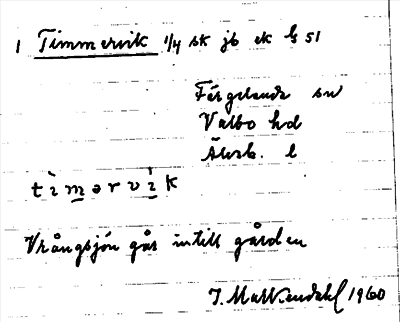 1 Timmervik 1/4 sk jb ek b 51
Färgelanda sn
Valbo hd
Älvsb. l
tìmərvìk
Vrångsjön går intill gården
J. Mattsendahl 1960